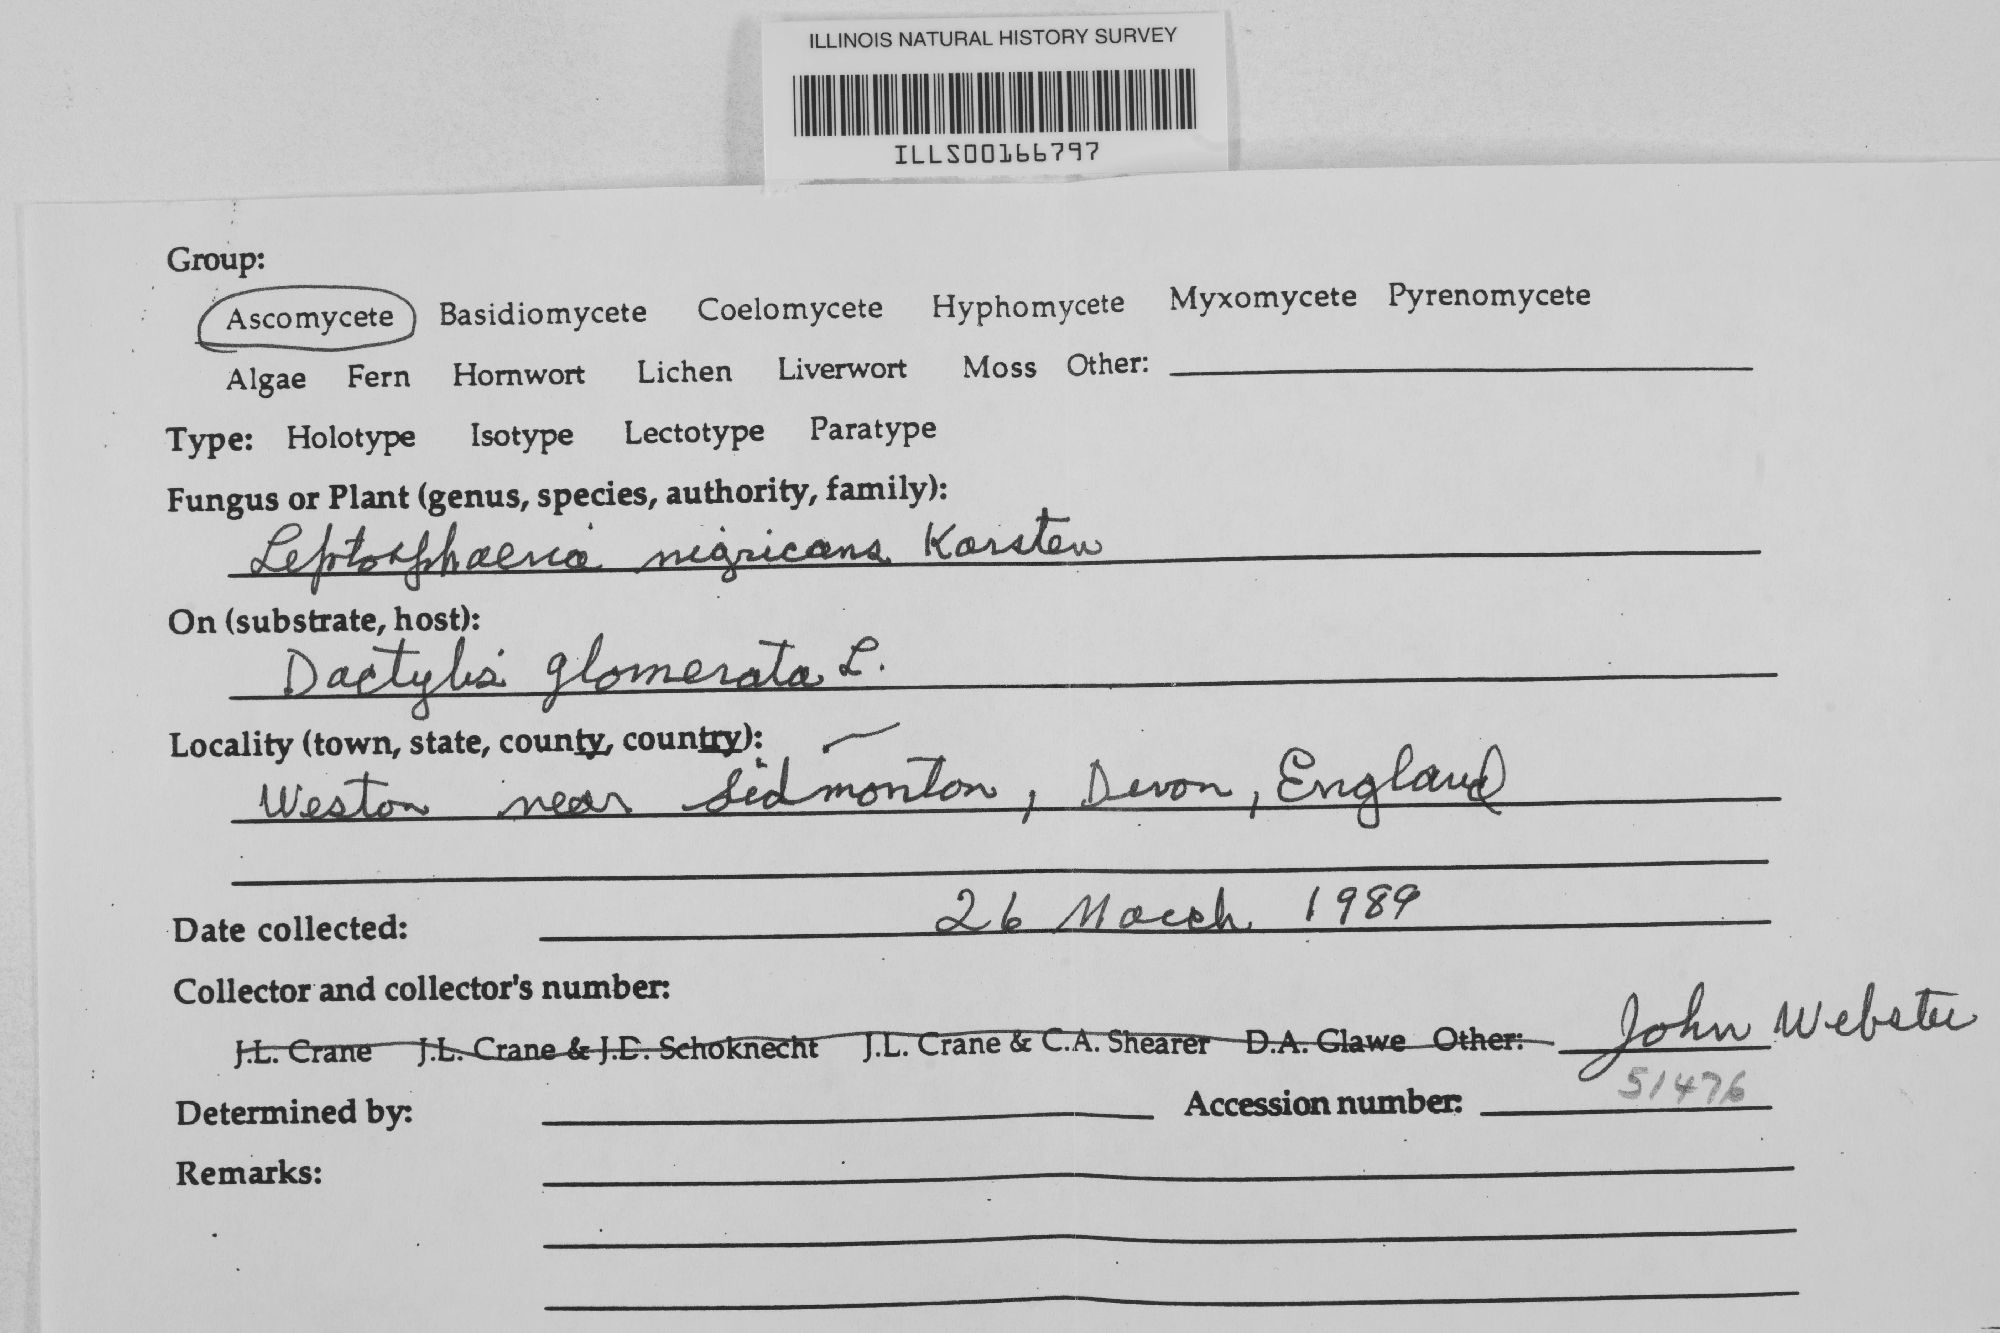 ILLINOIS NATURAL HISTORY SURVEY
ILLS00166797
Group:
Ascomycete Basidiomycete Coelomycete Hyphomycete Myxomycete Pyrenomycete
Algae Fern Hornwort Lichen Liverwort Moss Other:
Type: Holotype Isotype Lectotype Paratype
Fungus or Plant (genus, species, authority, family):
Leptosphaeria nigricans Karsten
On (substrate, host):
Dactylis glomerata L.
Locality (town, state, county, country):
Weston near Sidmonton, Devon, England
Date collected: 26 March 1989
Collector and collector's number:
J.L. Crane J.L. Crane & J.D. Schoknecht J.L. Crane & C.A. Shearer D.A. Glawe Other: John Webster
Determined by: Accession number: 51476
Remarks: